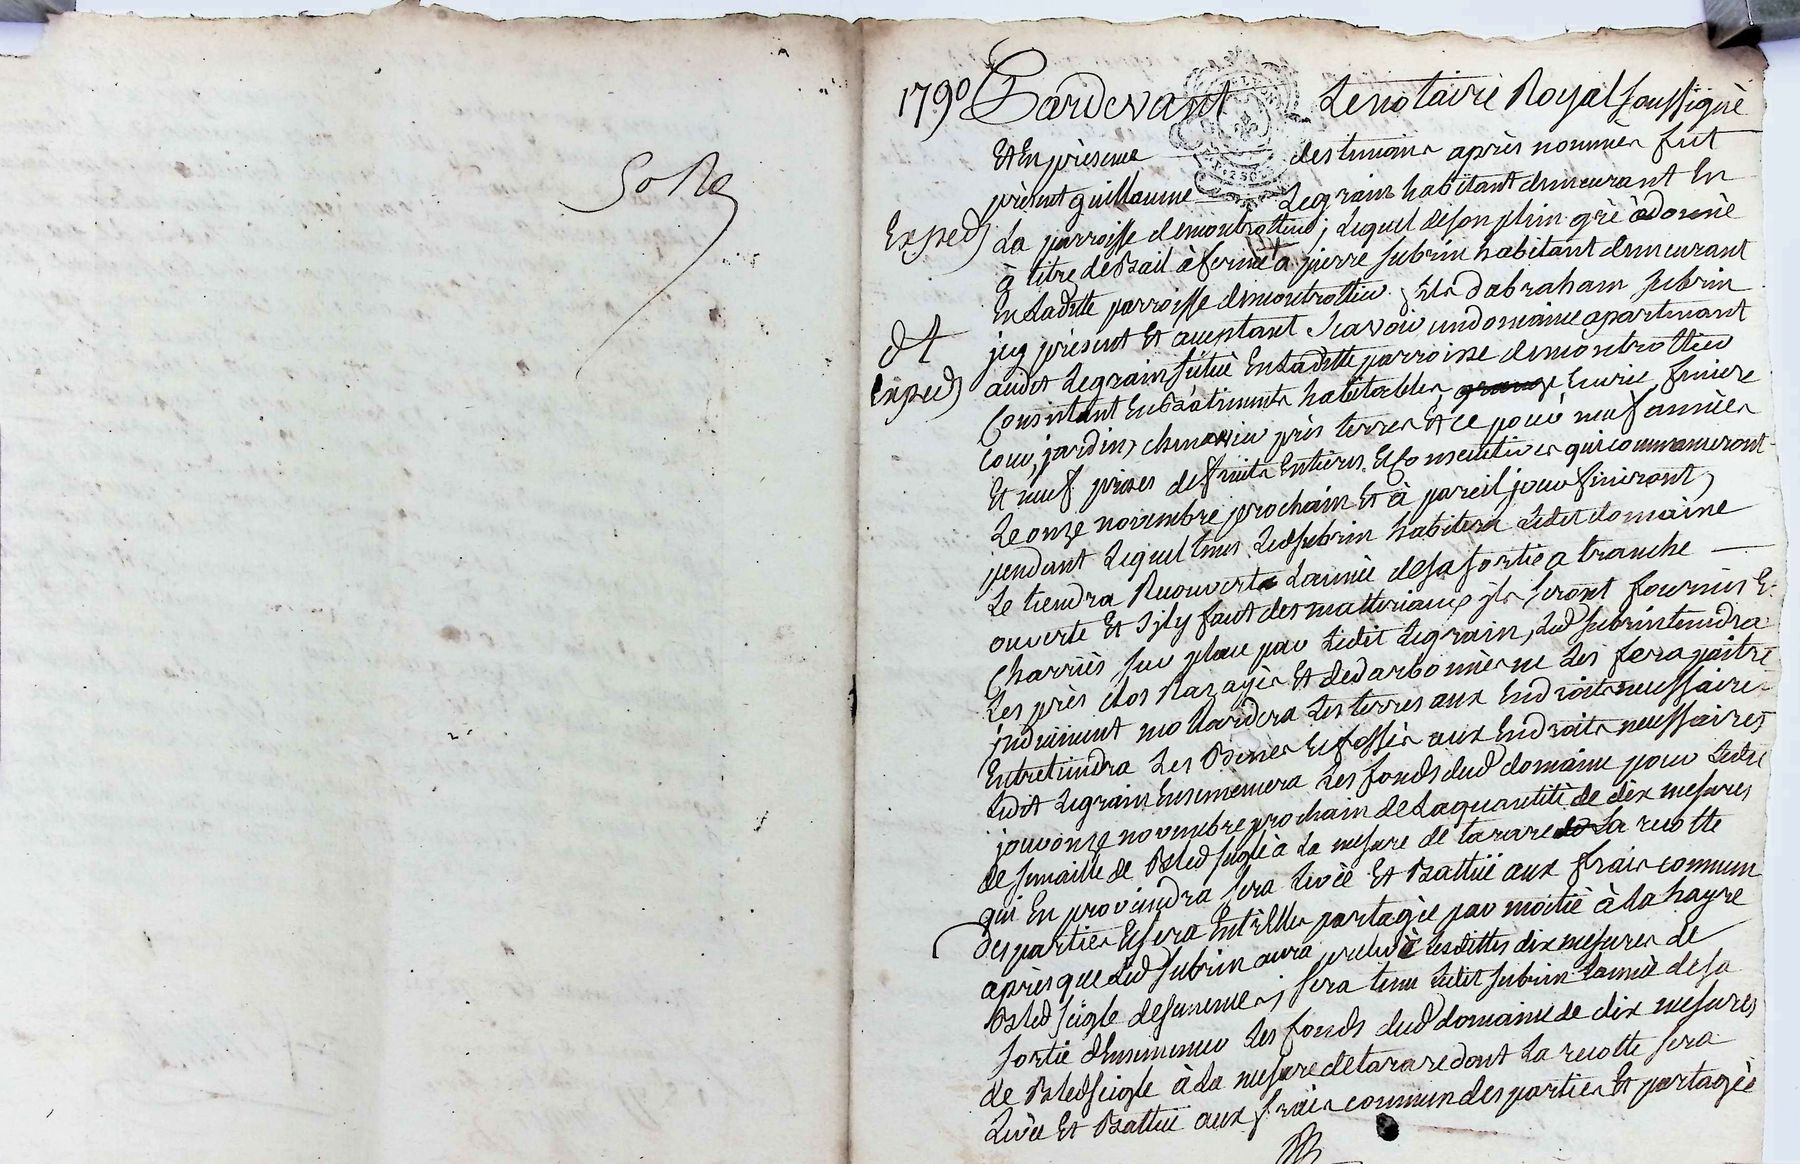 1790 Pardevant Le notaire Royal soussigné
Et En présence des temoins après nommés fut
présent guillaume Legrain habitant demeurant En
Exped
La parroisse de montrottier, Lequel de son plein gré à donné
à titre de Bail à ferme a pierre subrin habitant demeurant
En Laditte parroisse de montrottier fils d'abraham subrin
et
jcy présent Et acceptant Scavoir un domaine apartenant
Exped
audit Legrain sitüé En Laditte parroisse de montrottier
Consistant En Bâtiments habitables, Ecurie, feniere
Cour, jardin, chenevier près terres Et ce pour neuf années
Et neuf prises de fruits Entieres Et Consecutives qui commanceront
Le onze novembre prochain Et à pareil jour finiront,
pendant Lequel tems Led subrin habitera Ledit domaine
Le tiendra Recouvert Lannée de sa sortie a tranche
ouverte Et S'ily faut des matteriaux jls seront fournis E
Charriés sur place par Ledit Legrain, Led subrin tiendra
Les près clos Razayés Et ne Les fera paitre
induëment Les terres aux Endroits necessaires
Entretiendra Les Et fossés aux Endroits necessaires
Ledit Legrain Ensemencera Les fonds dud domaine pour Ledit
jour onze novembre prochain de La quantité de dix mesures
de semaille de Bled seigle à La mesure de tarare La recolte
qui En proviendra sera Livée Et Battüe aux frais commun
des parties Et sera Entr'Elles partagée par moitié à La hayre
après que Led subrin aura prelevé Lesdittes dix mesures de
Bled seigle de semence, sera tenu Ledit subrin Lannée de sa
sortie d'Ensemencer Les fonds dud domaine de dix mesures
de Bled seigle à La mesure de tarare dont La recolte sera
Livée Et Battüe aux frais commun des parties Et partagée